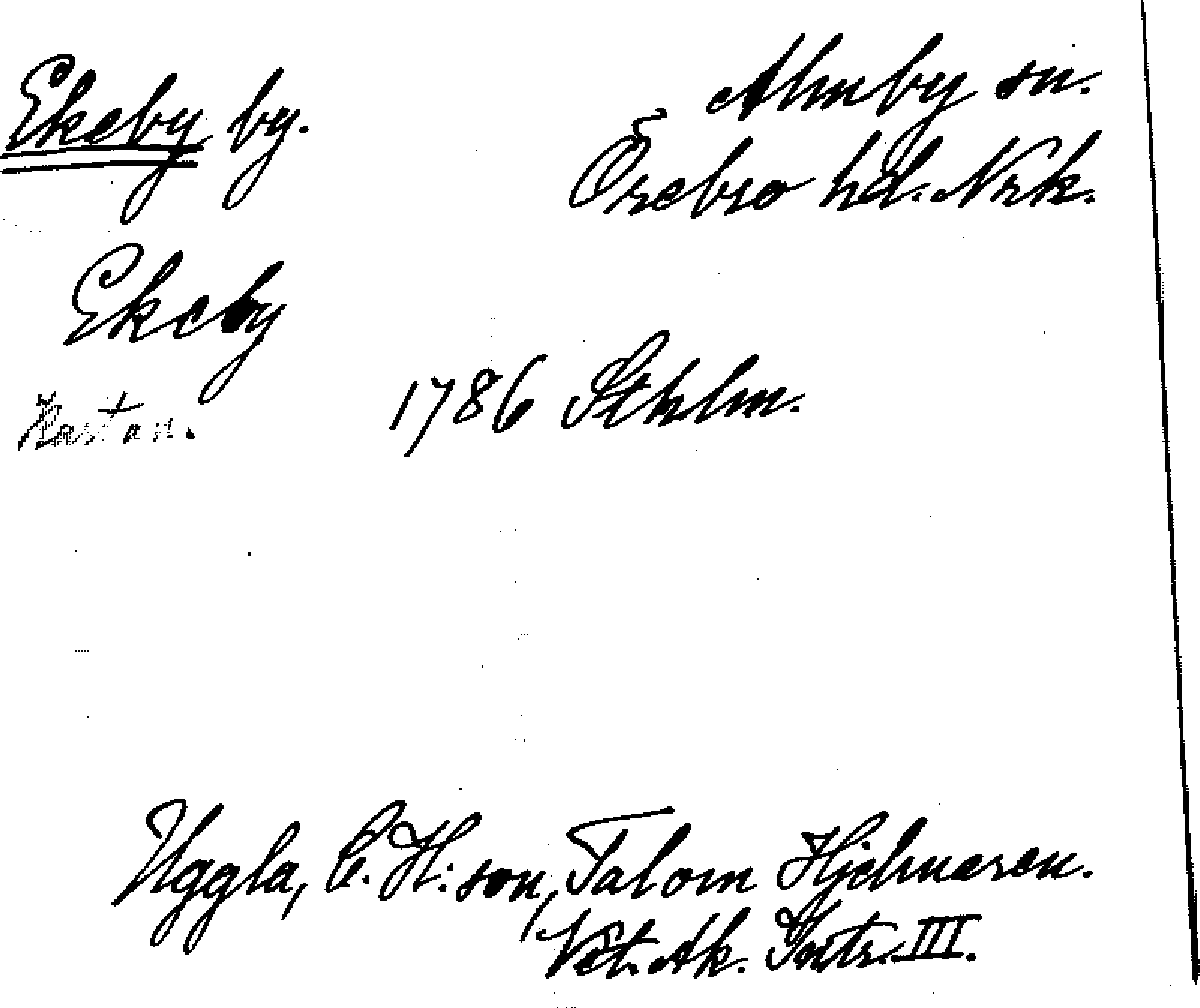 Ekeby by.
Almby sn.
Örebro hd. Nrk.
Ekeby
Kartan.
1786 Sthlm.
Uggla, C. H:son, Tal om Hjelmaren.
Vet. Ak. Intr. III.